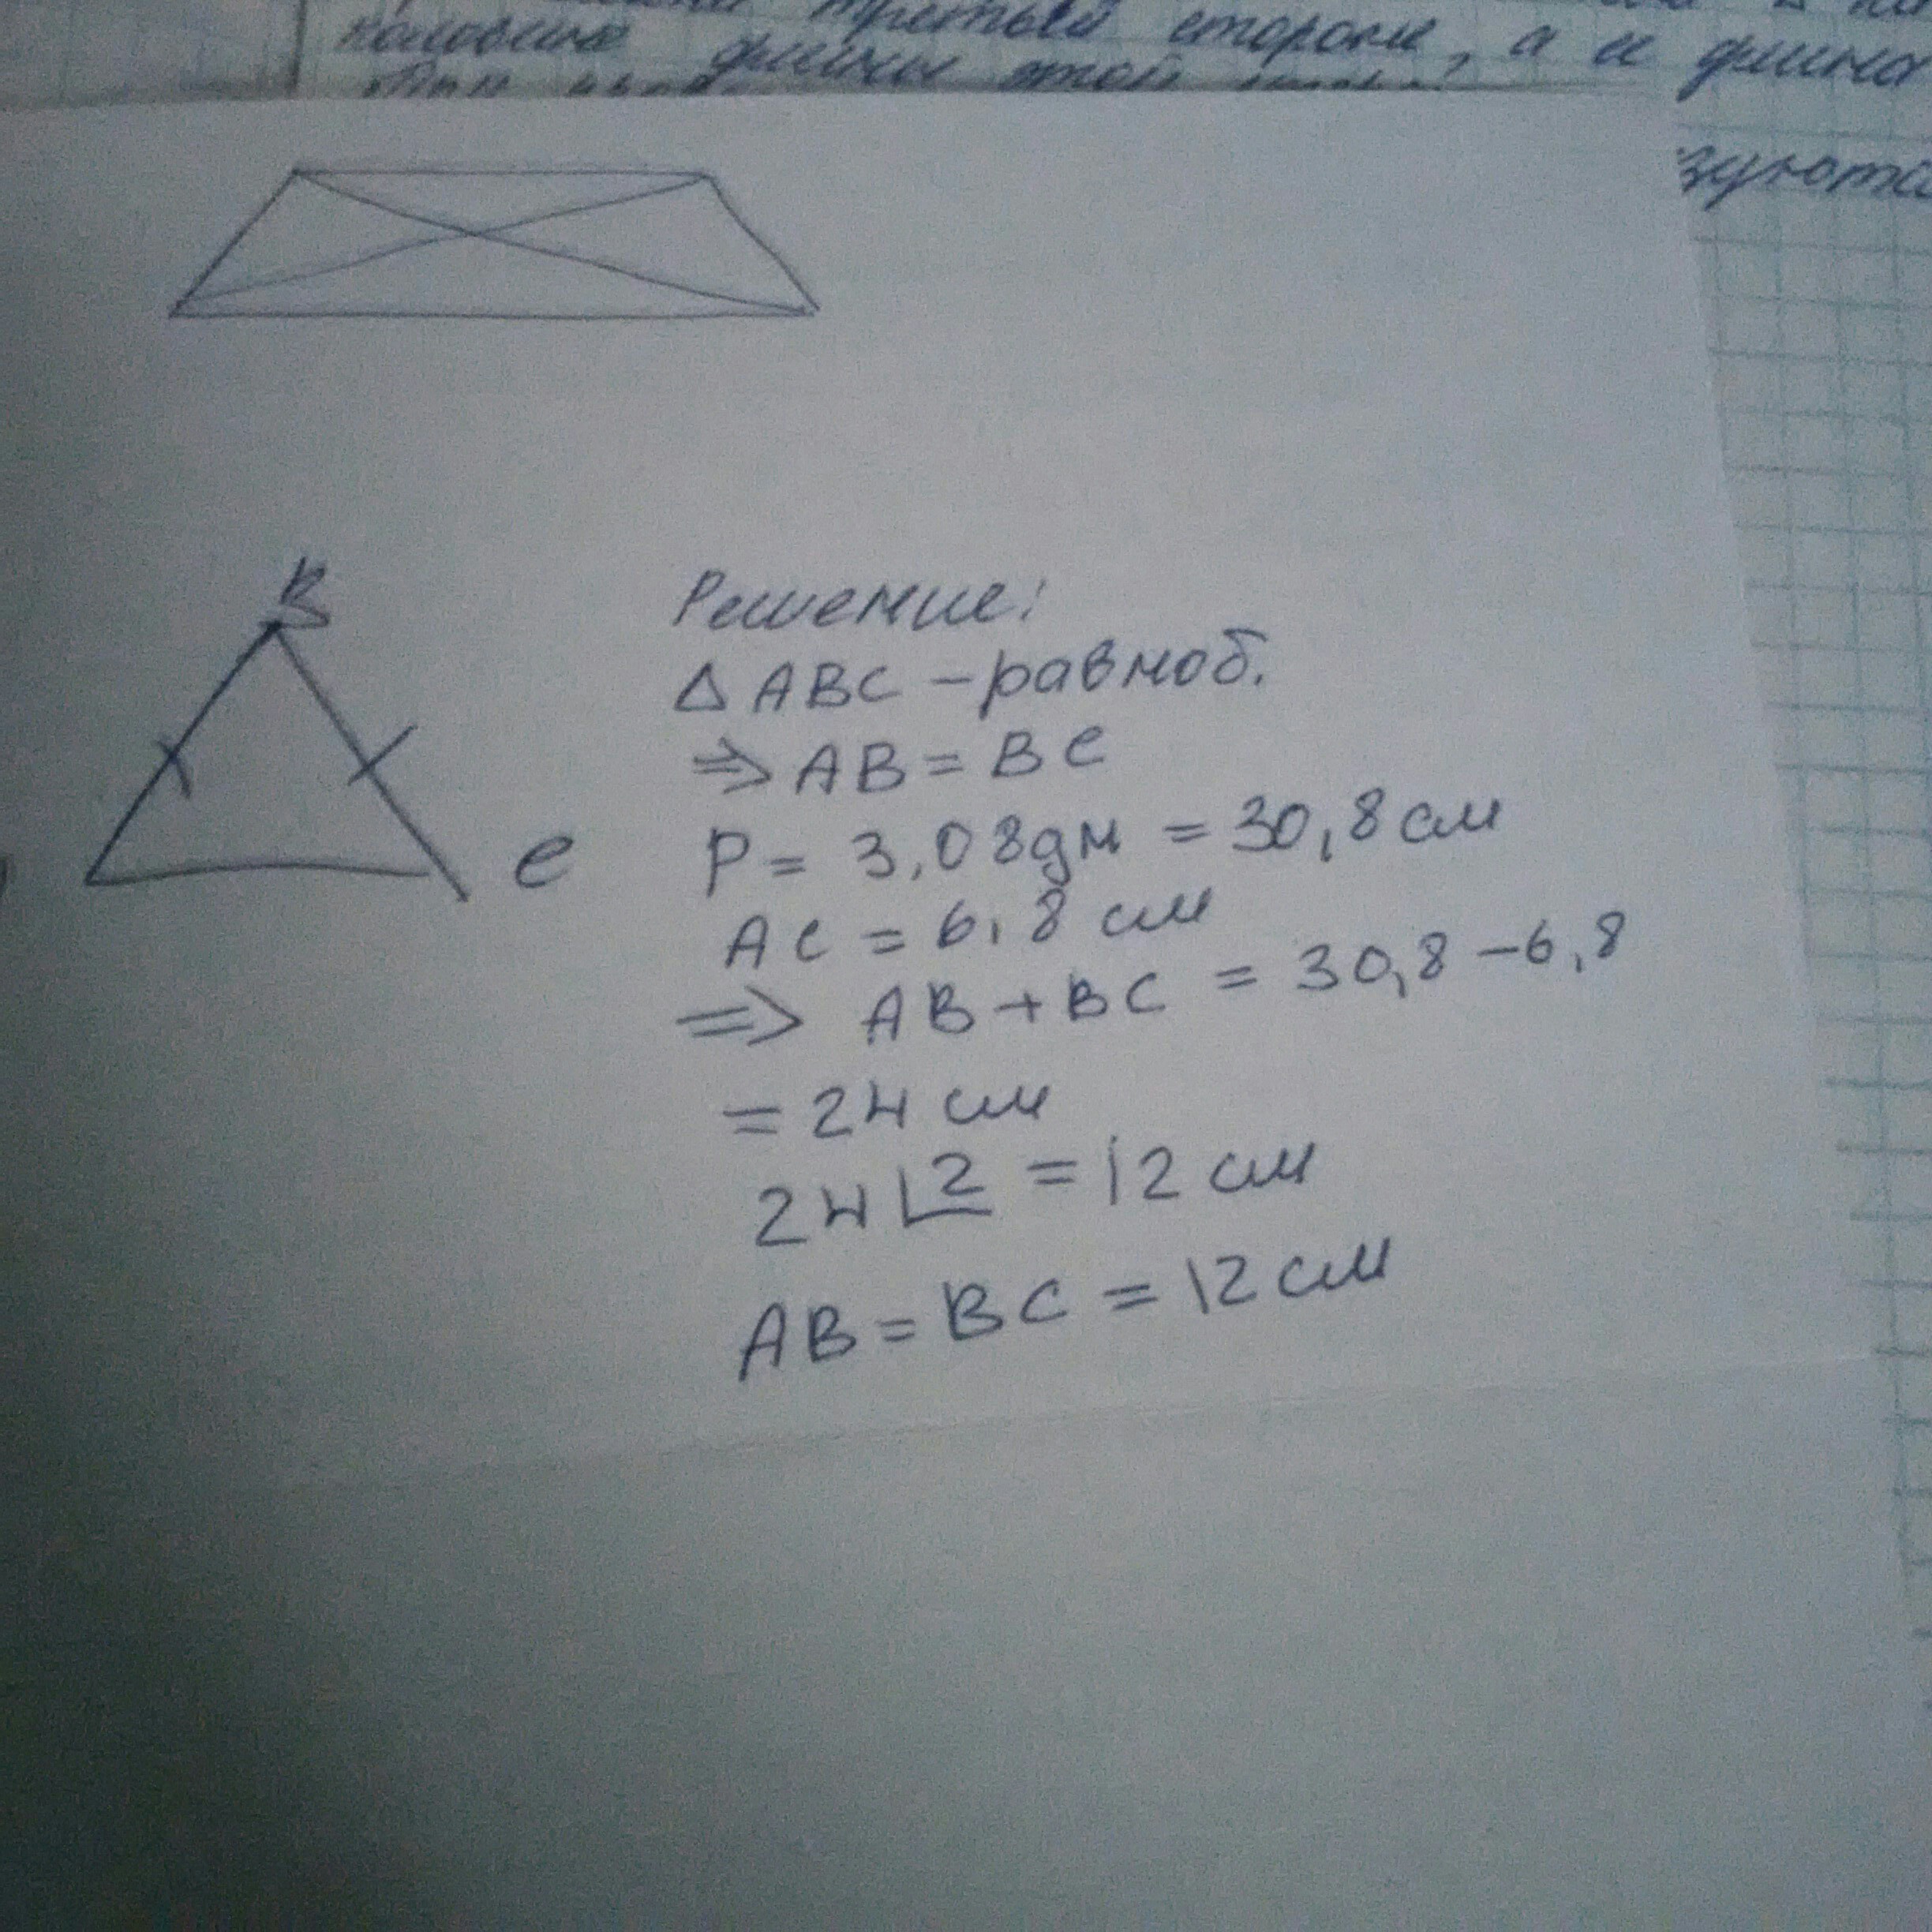 третьей стороне, а и длина
половине длины этой
B
C
Решение:
Δ ABC – равноб.
⇒ AB = BC
P = 3,08 дм = 30,8 см
AC = 6,8 см
⇒ AB + BC = 30,8 – 6,8
= 24 см
24 ∟2 = 12 см
AB = BC = 12 см